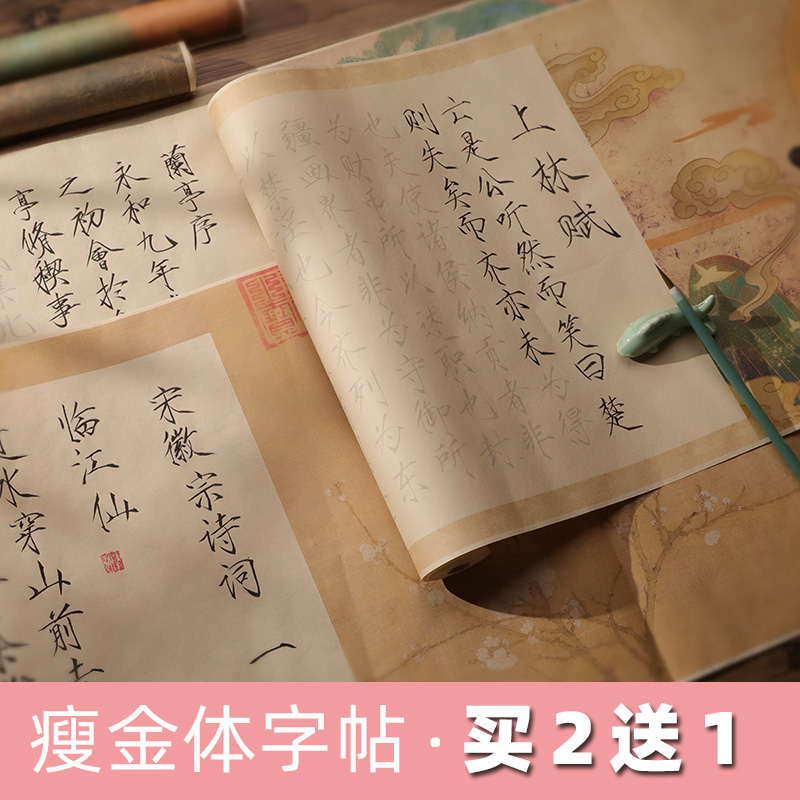 上林赋
亡是公听然而笑曰楚
则失矣而齐亦未为得
也夫使诸侯纳贡者非
为财币所以述职也封
疆画界者非为守御所
以禁淫也今齐列为东
蘭亭序
永和九年
之初會於
亭脩禊事
宋徽宗诗词 一
临江仙
过水穿山前去
瘦金体字帖·买2送1